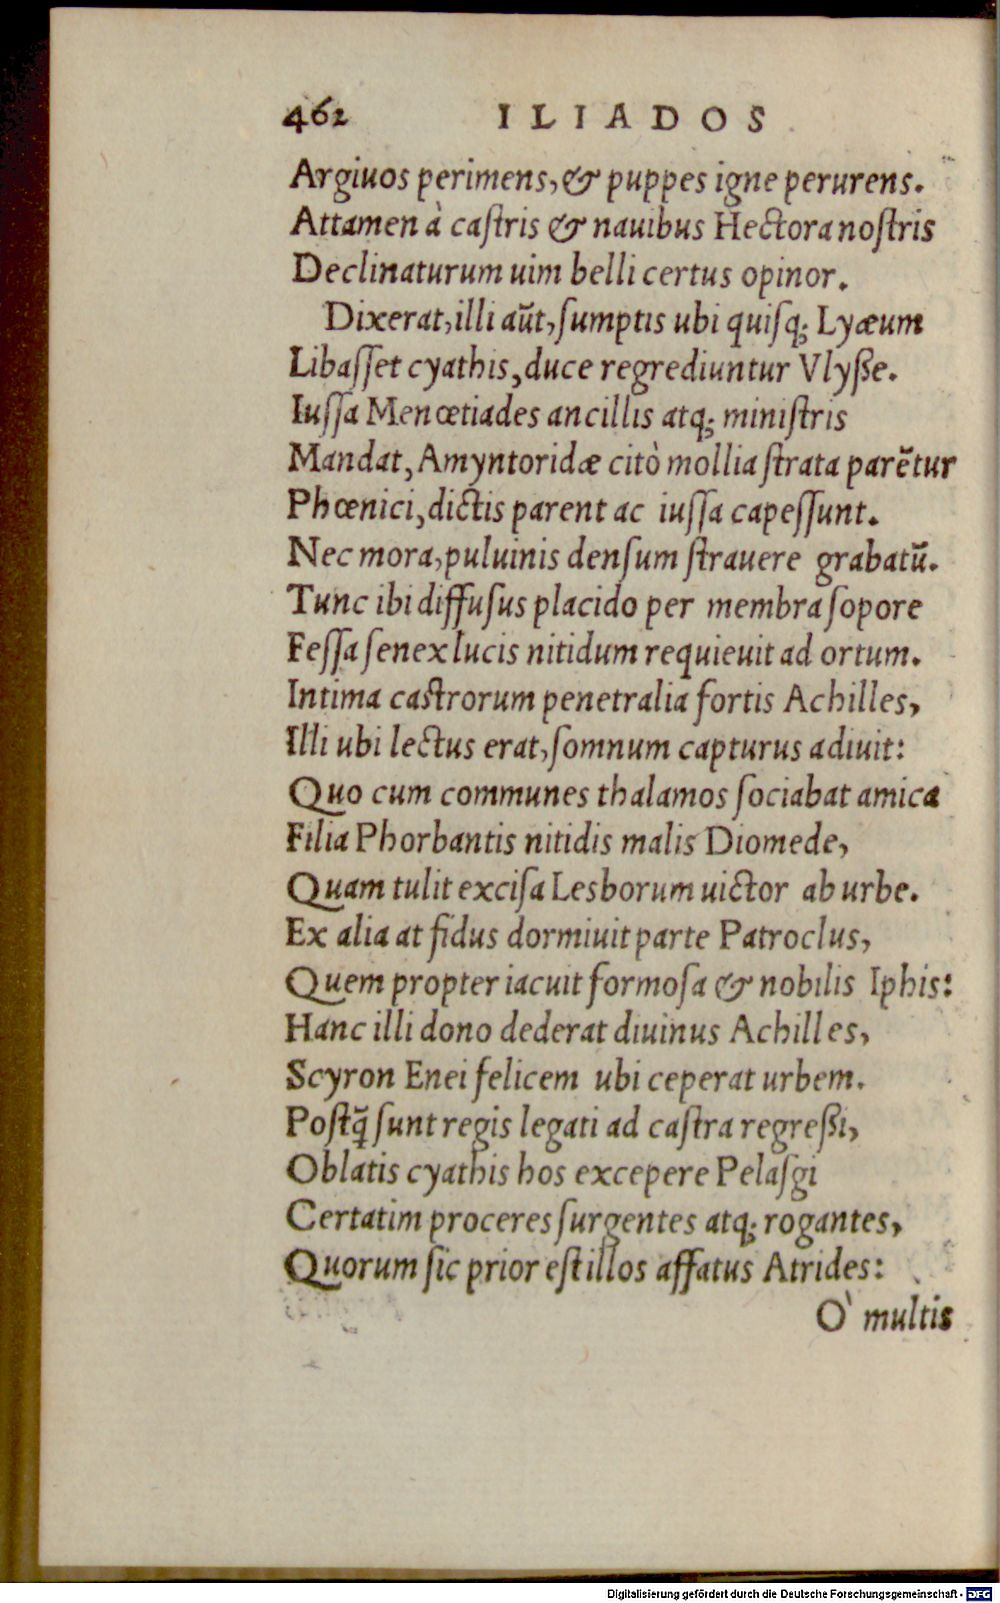 462 ILIADOS
Argiuos perimens, & puppes igne perurens.
Attamen à caſtris & nauibus Hectora noſtris
Declinaturum uim belli certus opinor.
Dixerat, illi aūt, ſumptis ubi quiſq; Lyæum
Libaſſet cyathis, duce regrediuntur Vlyße.
Iuſſa Menœtiades ancillis atq; miniſtris
Mandat, Amyntoridæ citò mollia ſtrata parētur
Phœnici, dictis parent ac iuſſa capeſſunt.
Nec mora, puluinis denſum ſtrauere grabatū.
Tunc ibi diffuſus placido per membra ſopore
Feſſa ſenex lucis nitidum requieuit ad ortum.
Intima caſtrorum penetralia fortis Achilles,
Illi ubi lectus erat, ſomnum capturus adiuit:
Quo cum communes thalamos ſociabat amica
Filia Phorbantis nitidis malis Diomede,
Quam tulit exciſa Lesborum uictor ab urbe.
Ex alia at fidus dormiuit parte Patroclus,
Quem propter iacuit formoſa & nobilis Iphis:
Hanc illi dono dederat diuinus Achilles,
Scyron Enei felicem ubi ceperat urbem.
Poſtq̃ ſunt regis legati ad caſtra regreßi,
Oblatis cyathis hos excepere Pelaſgi
Certatim proceres ſurgentes atq; rogantes,
Quorum ſic prior eſt illos affatus Atrides:
O` multis
Digitalisierung gefördert durch die Deutsche Forschungsgemeinschaft - DFG